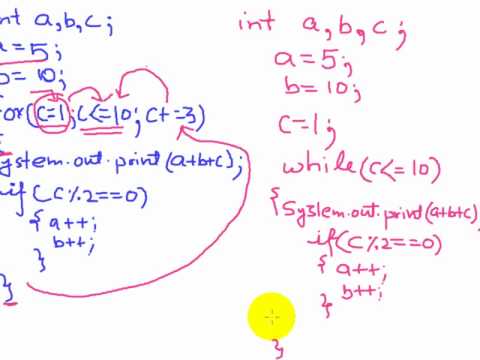 int a,b,c;
a=5;
b=10;
for(c=1;c<=10;c+=3)
{
System.out.print(a+b+c);
if(c%2==0)
{ a++;
b++;
}
}
int a,b,c;
a=5;
b=10;
c=1;
while(c<=10)
{System.out.print(a+b+c);
if(c%2==0)
{ a++;
b++;
}
}